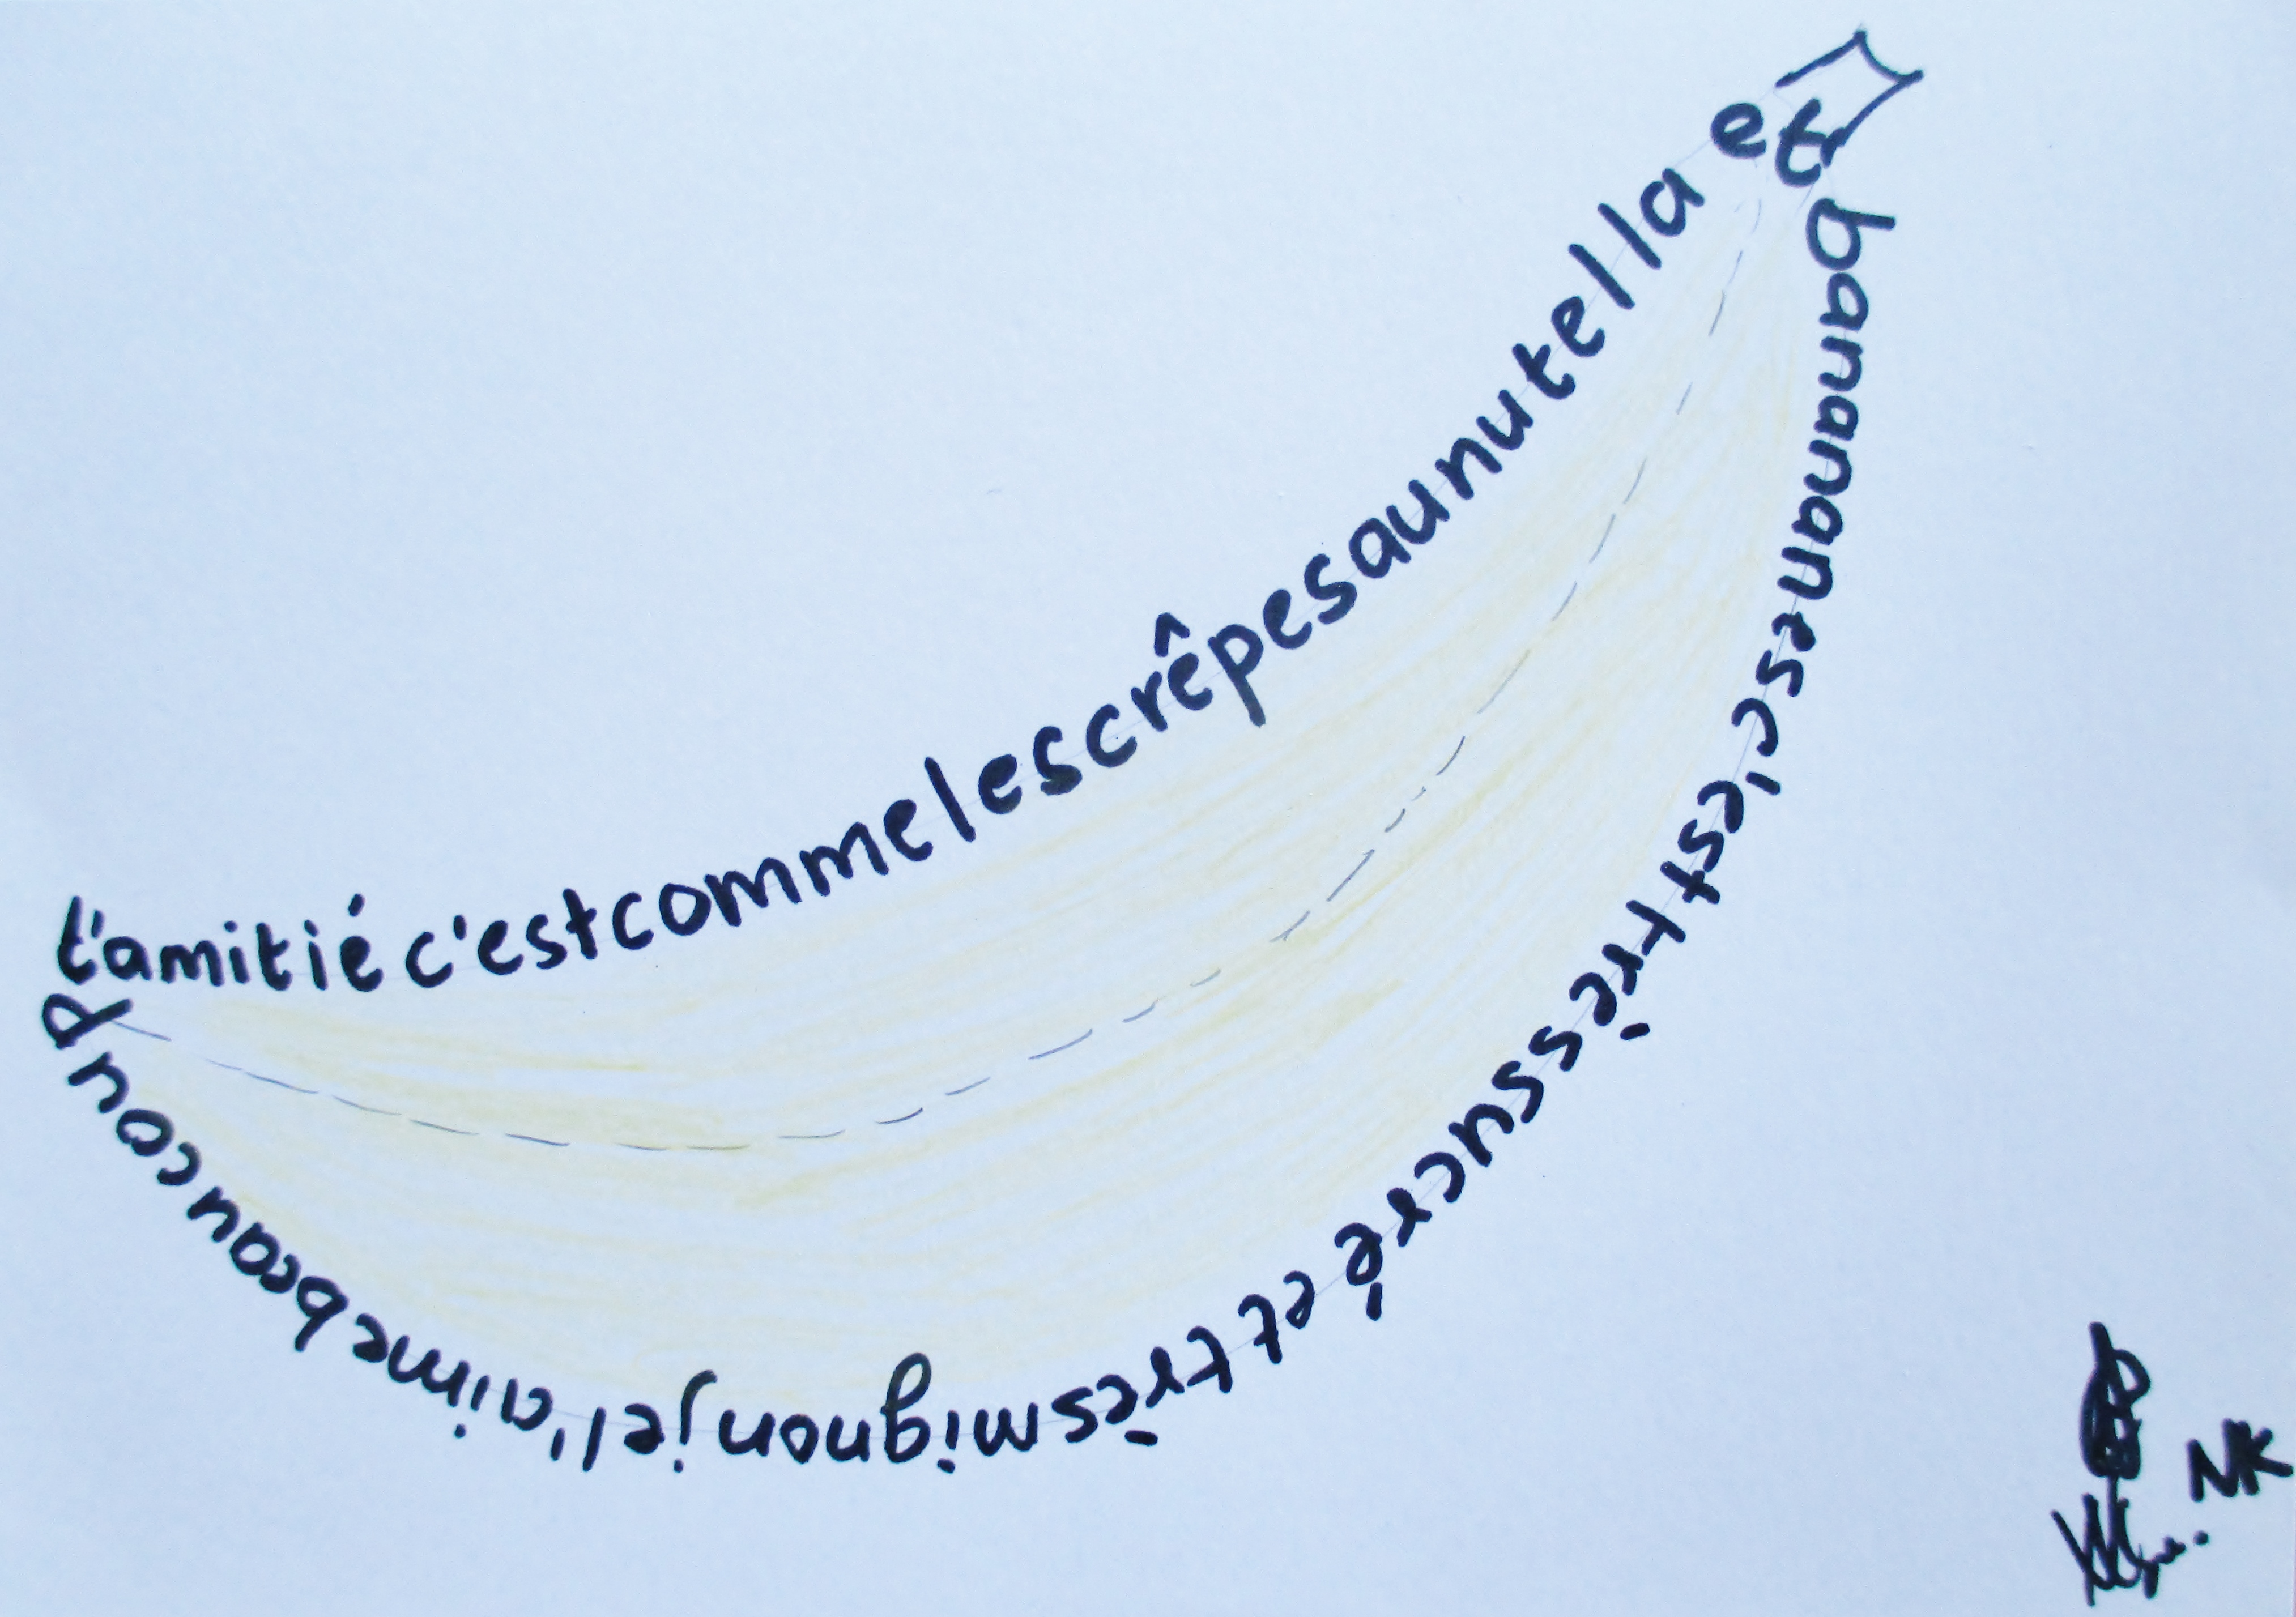 l'amitié c'estcommelescrêpesaunutella et
banananesc'esttrèssucréettrèsmignonjel'aimebeaucoup
NK